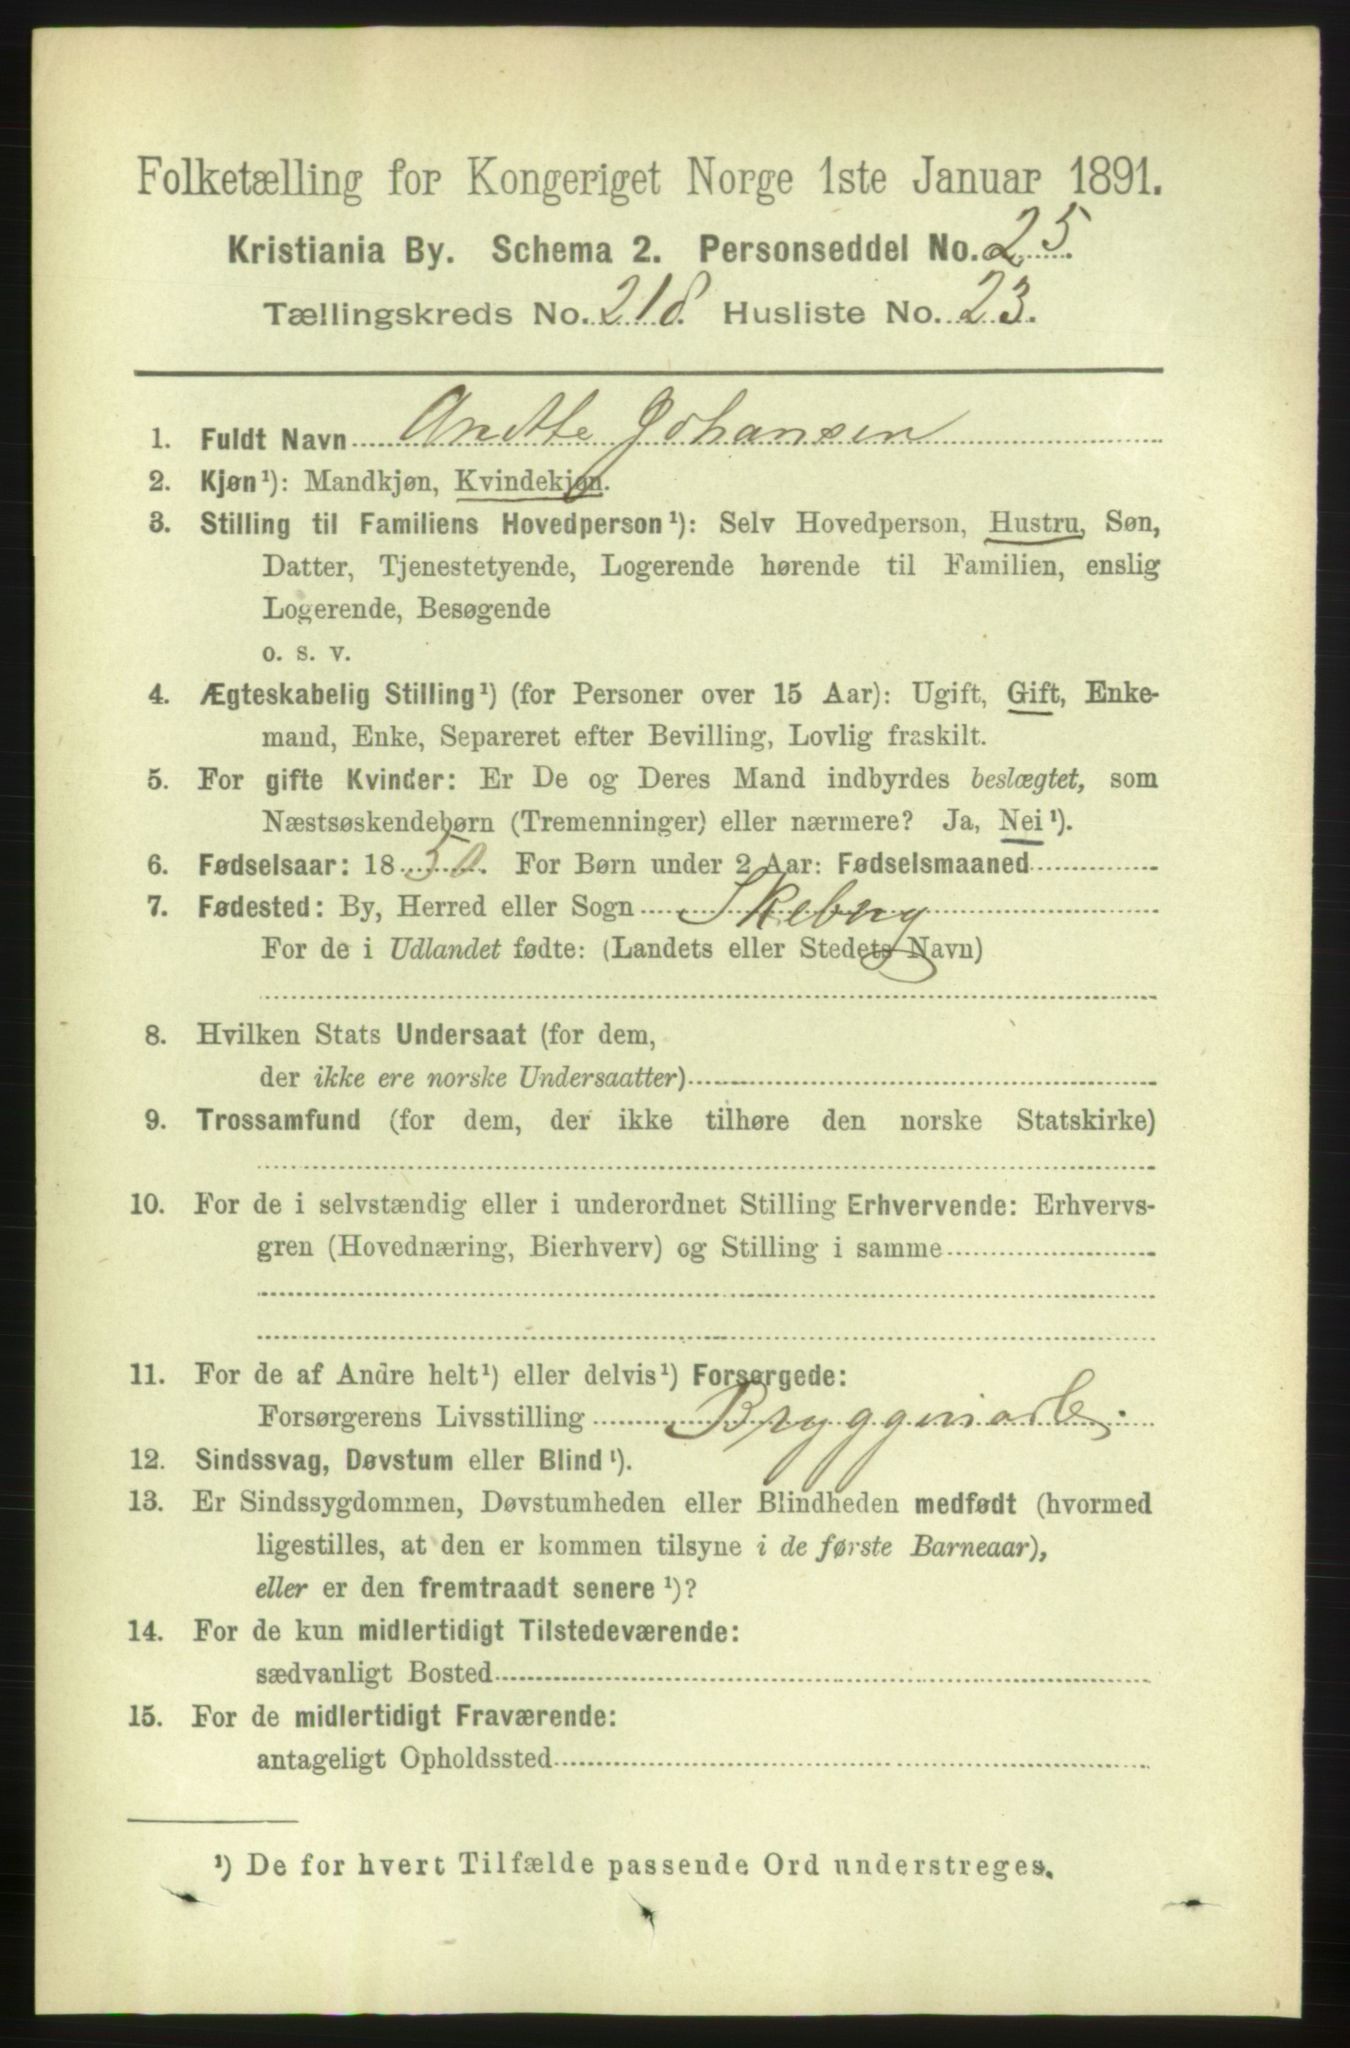 Folketælling for Kongeriget Norge 1ste Januar 1891.
Kristiania By. Schema 2. Personseddel No. 25.
Tællingskreds No. 218. Husliste No. 23.
1. Fuldt Navn Anette Johansen
2. Kjøn¹): Mandkjøn, Kvindekjøn.
3. Stilling til Familiens Hovedperson¹): Selv Hovedperson, Hustru, Søn,
Datter, Tjenestetyende, Logerende hørende til Familien, enslig
Logerende, Besøgende
o. s. v.
4. Ægteskabelig Stilling¹) (for Personer over 15 Aar): Ugift, Gift, Enke-
mand, Enke, Separeret efter Bevilling, Lovlig fraskilt.
5. For gifte Kvinder: Er De og Deres Mand indbyrdes beslægtet, som
Næstsøskendebørn (Tremenninger) eller nærmere? Ja, Nei¹).
6. Fødselsaar: 1850. For Børn under 2 Aar: Fødselsmaaned
7. Fødested: By, Herred eller Sogn Skebng
For de i Udlandet fødte: (Landets eller Stedets Navn)
8. Hvilken Stats Undersaat (for dem,
der ikke ere norske Undersaatter)
9. Trossamfund (for dem, der ikke tilhøre den norske Statskirke)
10. For de i selvstændig eller i underordnet Stilling Erhvervende: Erhvervs-
gren (Hovednæring, Bierhverv) og Stilling i samme
11. For de af Andre helt¹) eller delvis¹) Forsørgede:
Forsørgerens Livsstilling Bryggeriarb.
12. Sindssvag, Døvstum eller Blind¹).
13. Er Sindssygdommen, Døvstumheden eller Blindheden medfødt (hvormed
ligestilles, at den er kommen tilsyne i de første Barneaar),
eller er den fremtraadt senere¹)?
14. For de kun midlertidigt Tilstedeværende:
sædvanligt Bosted
15. For de midlertidigt Fraværende:
antageligt Opholdssted
¹) De for hvert Tilfælde passende Ord understreges.